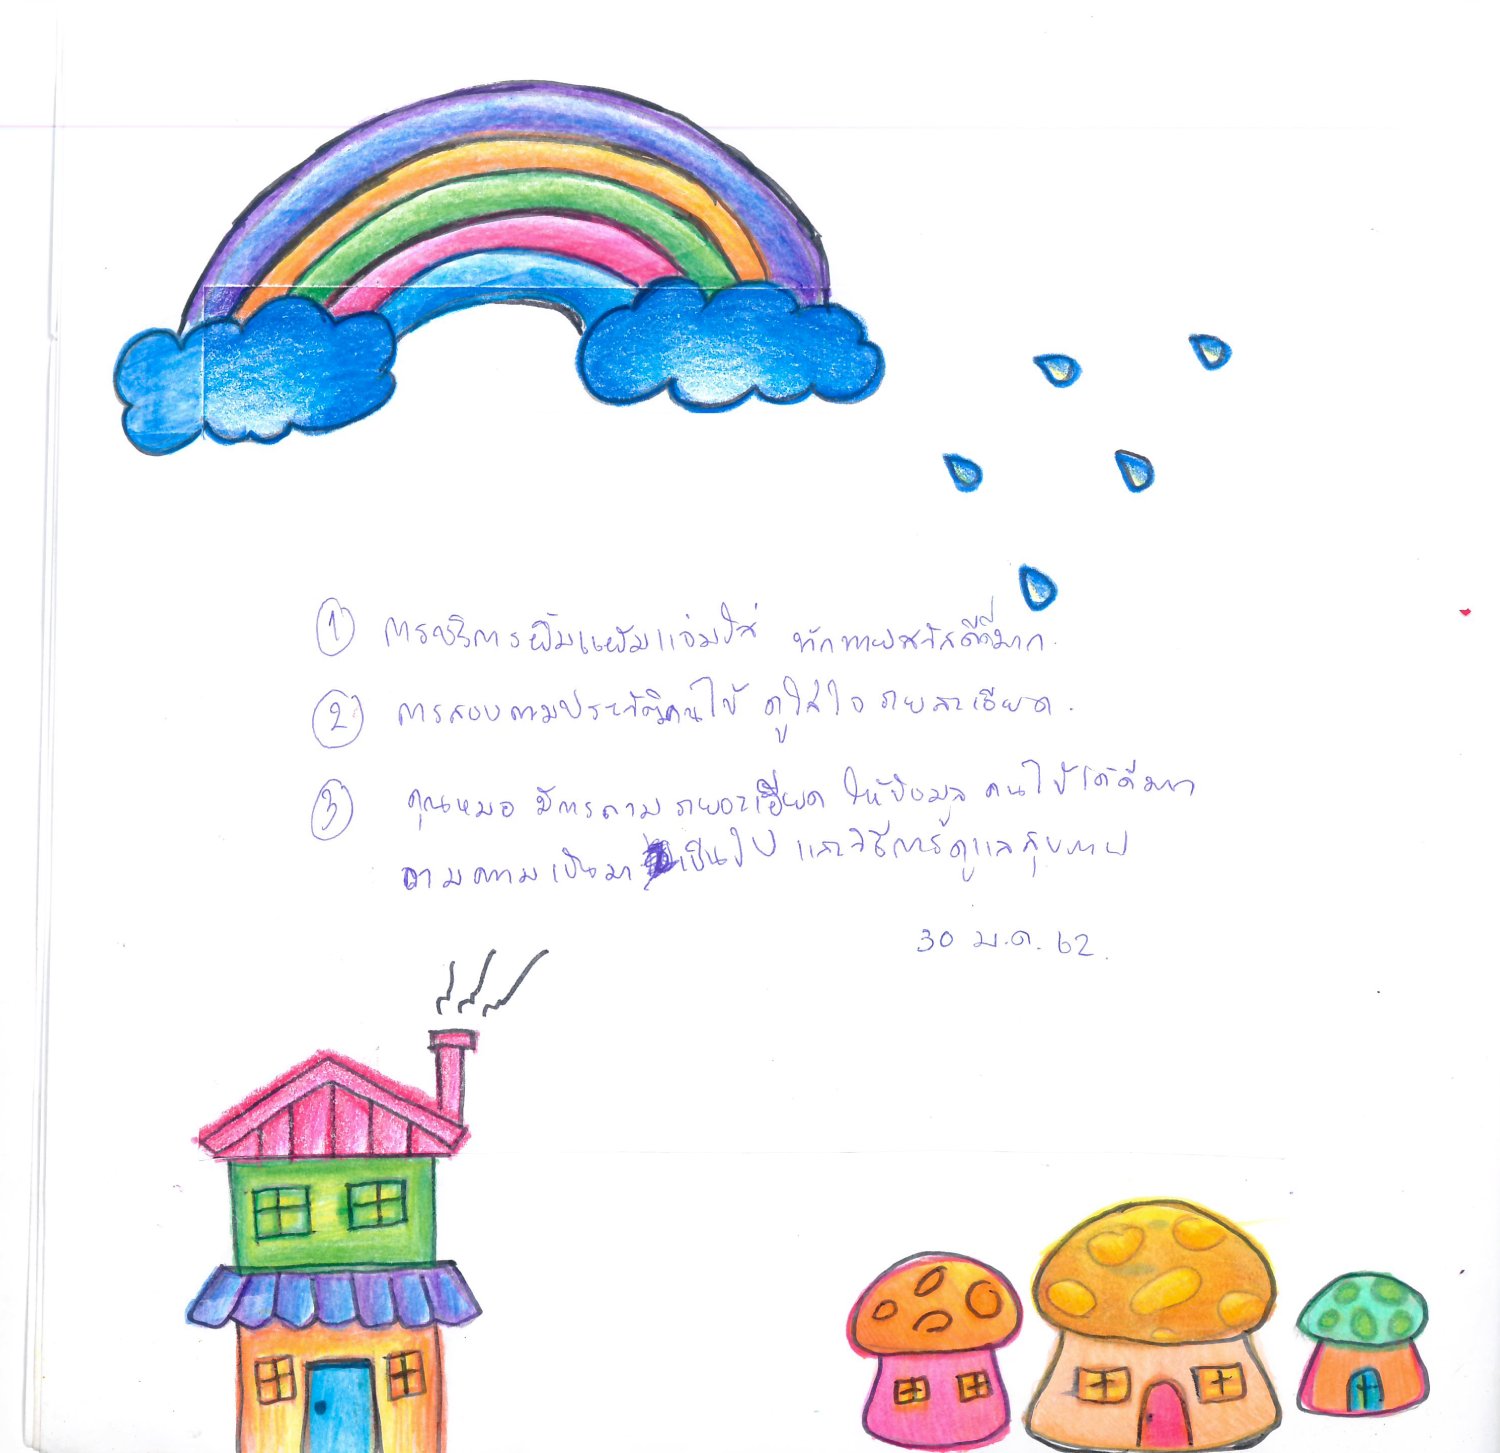 ① การบริการยิ้มแย้มแจ่มใส ทักทายสวัสดีดีมาก.
② การสอบถามประวัติคนไข้ ดูใส่ใจ รายละเอียด.
③ คุณหมอ มีการถาม รายละเอียด ให้ข้อมูล คนไข้ได้ดีมาก
ถามความเป็นมา เป็นไป และวิธีการดูแลสุขภาพ
30 ม.ค. 62.